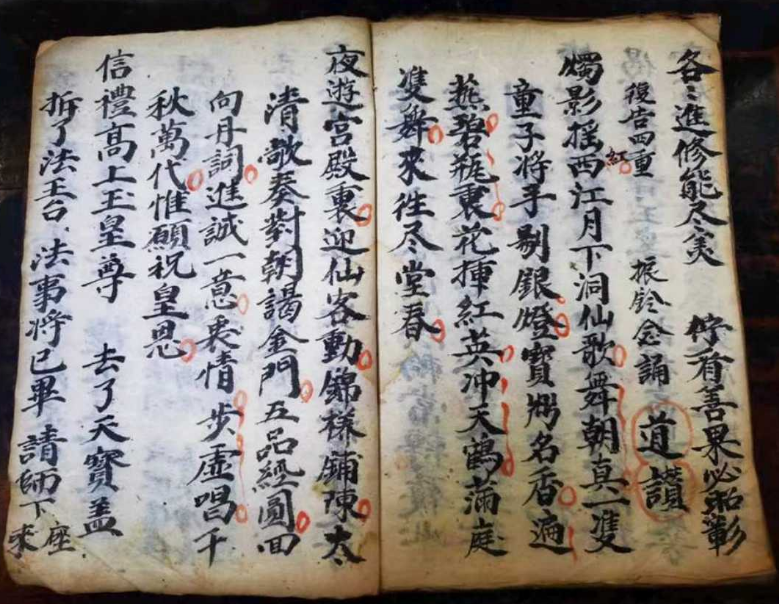 各〻進修能尽美　佇看善果必昭彰
復告四重　振鈴念誦　道讃
燭影摇紅西江月下洞仙歌舞朝真一隻
童子将手剔銀燈寶炉名香遍
燕碧瓶裏花揷紅英冲天鶴滿庭
隻舞来徃尽堂春
夜遊宮殿裏迎仙客動錦襟鋪陳太
清歌奏對朝謁金門五品經圓回
向丹詞進誠一意衷情步虛唱千
秋萬代惟願祝皇恩
信禮髙上玉皇尊　去了天寳盖
拆了法王台　法事将已畢　請師下座来